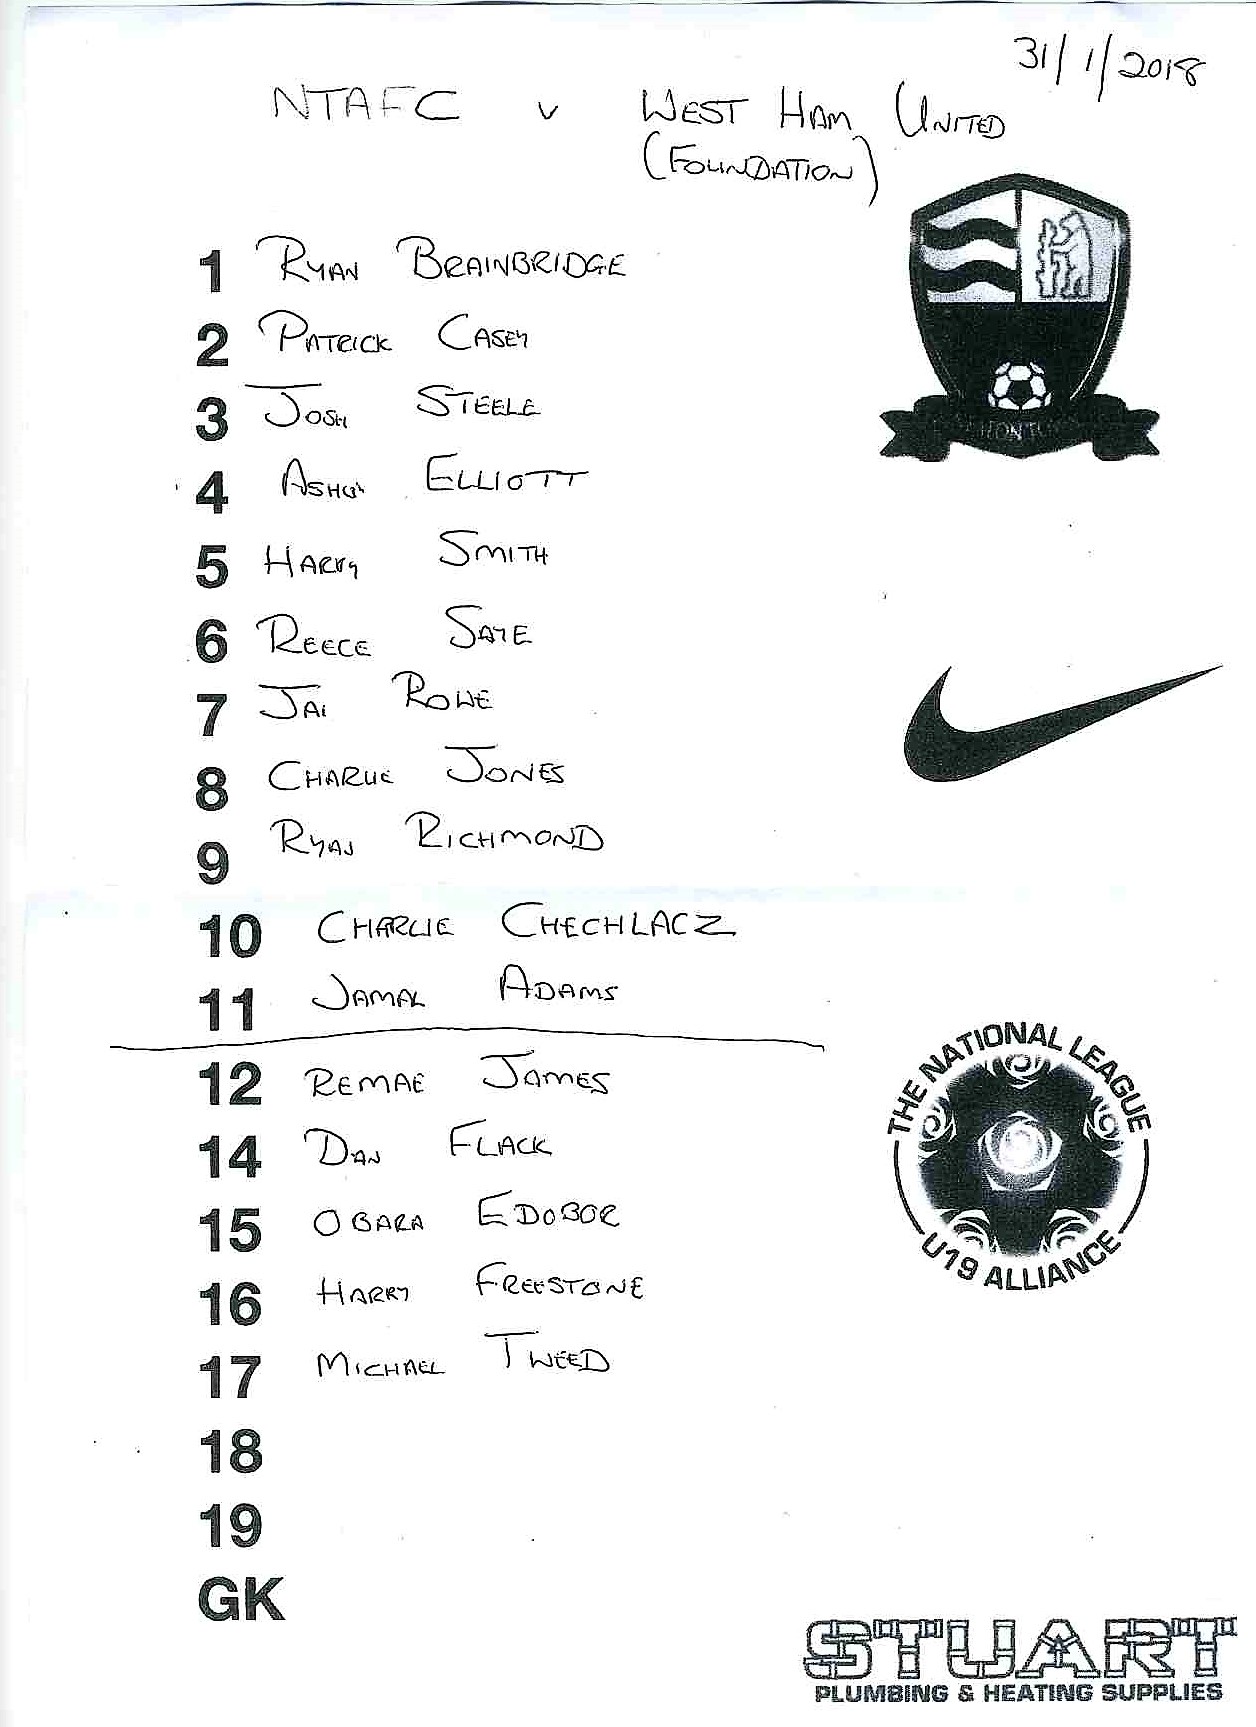 31/1/2018
NTAFC v WEST HAM UNITED
(FOUNDATION)
1 RYAN BRAINBRIDGE
2 PATRICK CASEY
3 JOSH STEELE
4 ASHLEY ELLIOTT
5 HARRY SMITH
6 REECE SAYE
7 JAI ROWE
8 CHARLIE JONES
9 RYAN RICHMOND
10 CHARLIE CHECHLACZ
11 JAMAL ADAMS
12 REMAE JAMES
14 DAN FLACK
15 OBARA EDOBOR
16 HARRY FREESTONE
17 MICHAEL TWEED
18
19
GK
THE NATIONAL LEAGUE
U19 ALLIANCE
STUART
PLUMBING & HEATING SUPPLIES